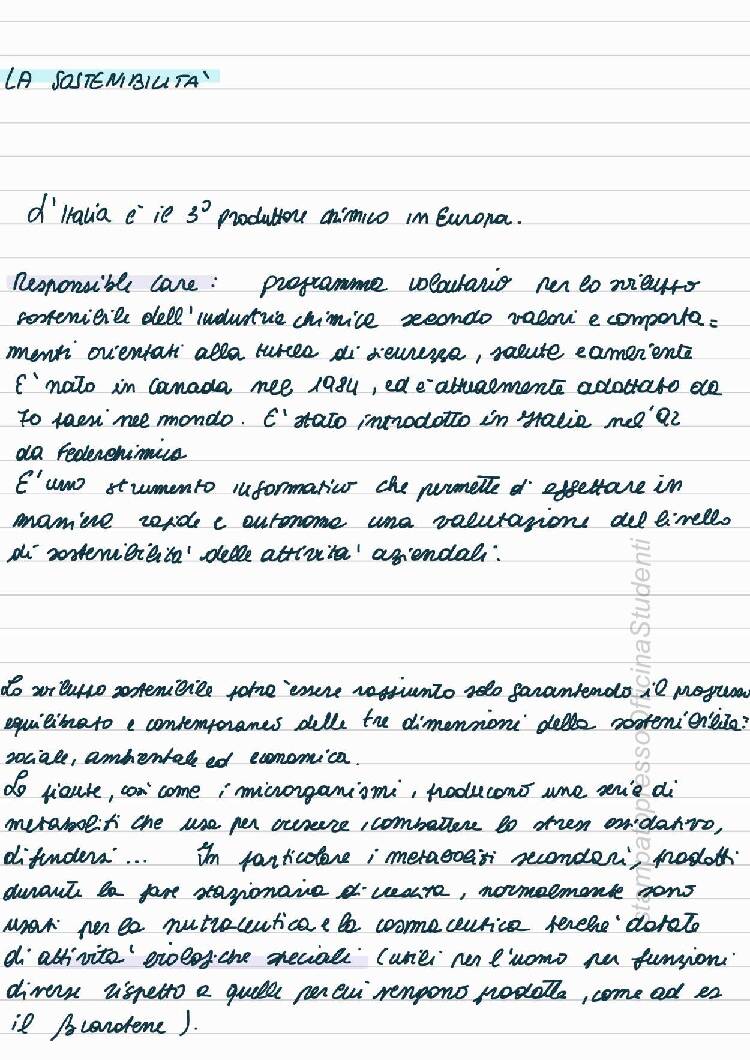 LA SOSTENIBILITA'
L'Italia è il 3° produttore chimico in Europa.
Responsible Care: programma volontario per lo sviluppo
sostenibile dell'industria chimica secondo valori e comporta=
menti orientati alla tutela di sicurezza, salute e ambiente
E' nato in Canada nel 1984, ed è attualmente adottato da
70 paesi nel mondo. E' stato introdotto in Italia nel '92
da Federchimica
E' uno strumento informatico che permette di effettuare in
maniera rapida e autonoma una valutazione del livello
di sostenibilita' delle attivita' aziendali.
Lo sviluppo sostenibile potra' essere raggiunto solo garantendo il progresso
equilibrato e contemporaneo delle tre dimensioni della sostenibilita':
sociale, ambientale ed economica.
Le piante, così come i microrganismi, producono una serie di
metaboliti che usa per crescere, combattere lo stress ossidativo,
difendersi... In particolare i metaboliti secondari, prodotti
durante la fase stazionaria di crescita, normalmente sono
usati per la nutraceutica e la cosmaceutica perche' dotate
di attivita' biologiche speciali (utili per l'uomo per funzioni
diverse rispetto a quelle per cui vengono prodotte, come ad es
il β carotene).
stampatopressoOfficinaStudenti